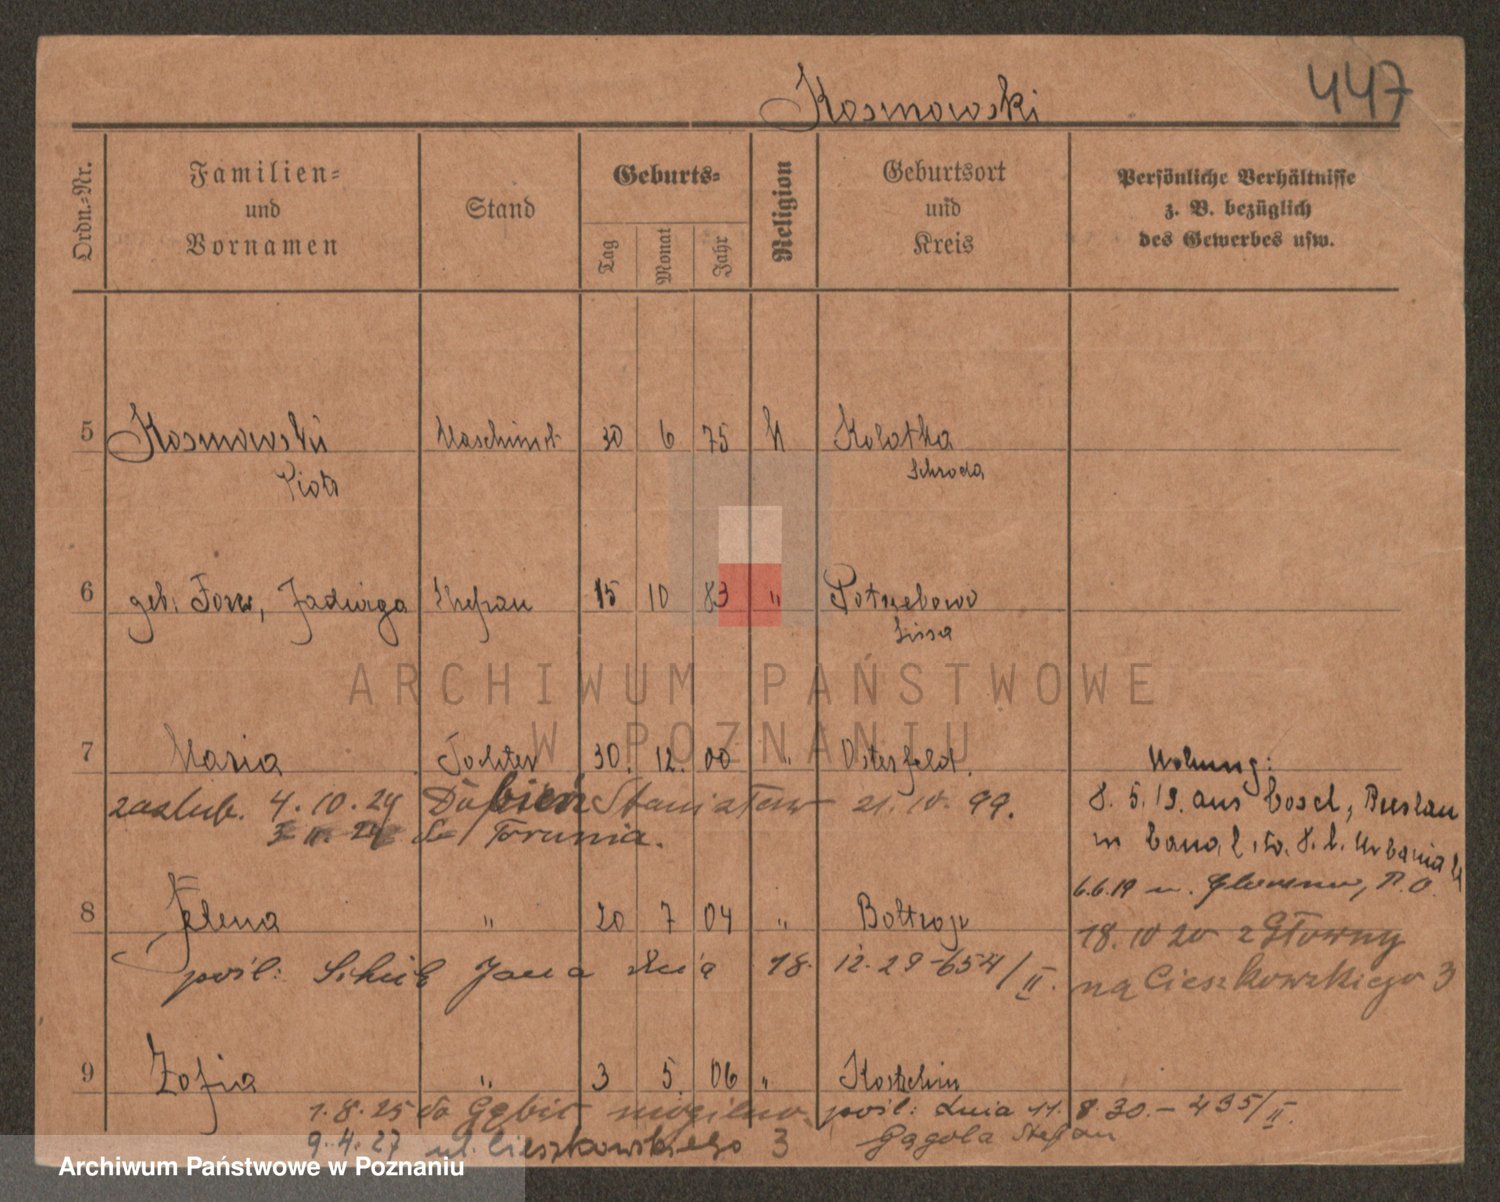 Kosmowski 447
Ordn.-Nr.
Familien- und Vornamen
Stand
Geburts-
Tag Monat Jahr
Religion
Geburtsort und Kreis
Persönliche Verhältnisse z. B. bezüglich des Gewerbes usw.
5 Kosmowski Maschinist 30 6 75 k Kolatka
Piotr Schroda
6 geb. Jadwiga Ehefrau 15 10 83 " Potrzebowo
Lissa
7 Maria Tochter 30. 12. 00 " Osterfeld. Wohnung:
zaślub. 4.10.24 Dabień Stanisław 21.10.99. 8.5.19. aus Cosel, Breslau
do Torunia.
6.6.19 n. Glowno, P.O.
8 Helena " 20 7 04 " 18.10 20 z Główny
pośl: Jana dnia 18. 12.29-654/II. na Cieszkowskiego 3
9 Zofia " 3 5 06 " Kostschin
1.8.25 do Gębic mogilno. pośl: dnia 11.8.30.-435/II.
9.4.27 ul. Cieszkowskiego 3 Gągola Stefan
ARCHIWUM PAŃSTWOWE
W POZNANIU
Archiwum Państwowe w Poznaniu